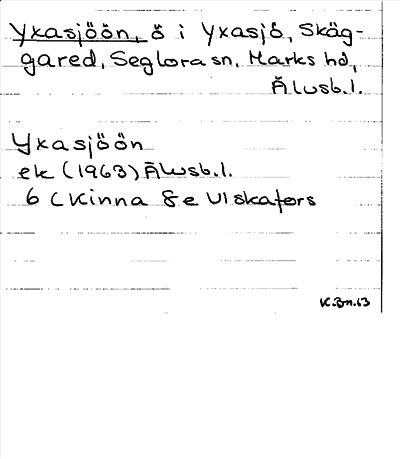 Yxasjöön, ö i Yxasjö, Skäg-
gared, Seglora sn, Marks hd,
Älvsb.l.
Yxasjöön
ek (1963) Älvsb.l.
6 C Kinna 8e Ulskafors
K.Bn.63